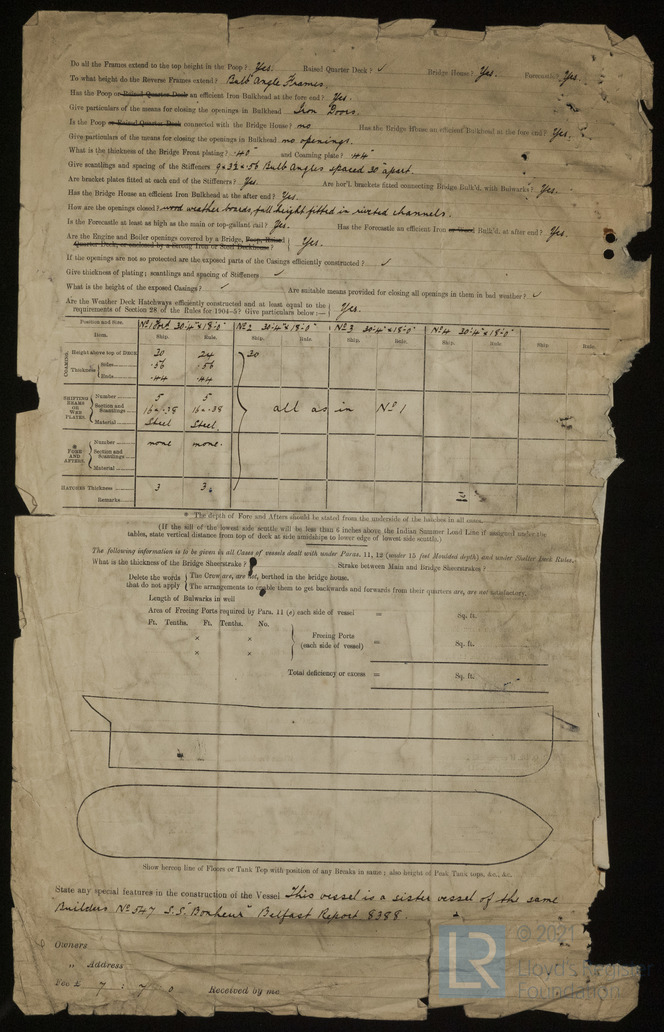 Do all the Frames extend to the top height in the Poop? Yes. Raised Quarter Deck? ✓ Bridge House? Yes. Forecastle? Yes.
To what height do the Reverse Frames extend? Bulb Angle Frames.
Has the Poop or Raised Quarter Deck an efficient Iron Bulkhead at the fore end? Yes.
Give particulars of the means for closing the openings in Bulkhead Iron Doors.
Is the Poop or Raised Quarter Deck connected with the Bridge House? no Has the Bridge House an efficient Bulkhead at the fore end? Yes.
Give particulars of the means for closing the openings in Bulkhead no openings.
What is the thickness of the Bridge Front plating? .40" and Coaming plate? .44"
Give scantlings and spacing of the Stiffeners 9 x 3½ x .56 Bulb Angles spaced 30" apart.
Are bracket plates fitted at each end of the Stiffeners? Yes. Are hor'l. brackets fitted connecting Bridge Bulk'd. with Bulwarks? Yes.
Has the Bridge House an efficient Iron Bulkhead at the after end? Yes.
How are the openings closed? wood weather boards full height fitted in riveted channels.
Is the Forecastle at least as high as the main or top-gallant rail? Yes. Has the Forecastle an efficient Iron or Wood Bulk'd. at after end? Yes.
Are the Engine and Boiler openings covered by a Bridge, Poop, Raised
Quarter Deck, or enclosed by a Strong Iron or Steel Deckhouse? Yes.
If the openings are not so protected are the exposed parts of the Casings efficiently constructed? ✓
Give thickness of plating; scantlings and spacing of Stiffeners ✓
What is the height of the exposed Casings? ✓ Are suitable means provided for closing all openings in them in bad weather? ✓
Are the Weather Deck Hatchways efficiently constructed and at least equal to the
requirements of Section 28 of the Rules for 1904-5? Give particulars below:— Yes.
Position and Size. Nº 1 Fore 30'-4" x 18'-0" Nº 2 30'-4" x 18'-0" Nº 3 30'-4" x 18'-0" Nº 4 30'-4" x 18'-0"
Item. Ship. Rule. Ship. Rule. Ship. Rule. Ship. Rule. Ship. Rule.
COAMING. Height above top of DECK 30 24 30
Thickness Sides .56 .56
Ends .44 .44
SHIFTING BEAMS OR WEB PLATES. Number 5 5
Section and Scantlings 16 x .38 16 x .38 all as in Nº 1
Material Steel Steel
* FORE AND AFTERS. Number none none.
Section and Scantlings
Material
HATCHES Thickness 3 3
Remarks
* The depth of Fore and Afters should be stated from the underside of the hatches in all cases.
(If the sill of the lowest side scuttle will be less than 6 inches above the Indian Summer Load Line if assigned under the
tables, state vertical distance from top of deck at side amidships to lower edge of lowest side scuttle.)
The following information is to be given in all Cases of vessels dealt with under Paras. 11, 12 (under 15 feet Moulded depth) and under Shelter Deck Rules.
What is the thickness of the Bridge Sheerstrake? Strake between Main and Bridge Sheerstrakes?
Delete the words The Crew are, are not, berthed in the bridge house.
that do not apply The arrangements to enable them to get backwards and forwards from their quarters are, are not satisfactory.
Length of Bulwarks in well
Area of Freeing Ports required by Para. 11 (e) each side of vessel = Sq. ft.
Ft. Tenths. Ft. Tenths. No.
× × Freeing Ports
(each side of vessel) = Sq. ft.
× ×
Total deficiency or excess = Sq. ft.
Show hereon line of Floors or Tank Top with position of any Breaks in same; also height of Peak Tank tops, &c., &c.
State any special features in the construction of the Vessel This vessel is a sister vessel of the same
Builders Nº 547 S.S. "Bonheur" Belfast Report 8388.
Owners
„ Address
Fee £ 7 : 7 0 Received by me
LR © 2021
Lloyd's Register
Foundation